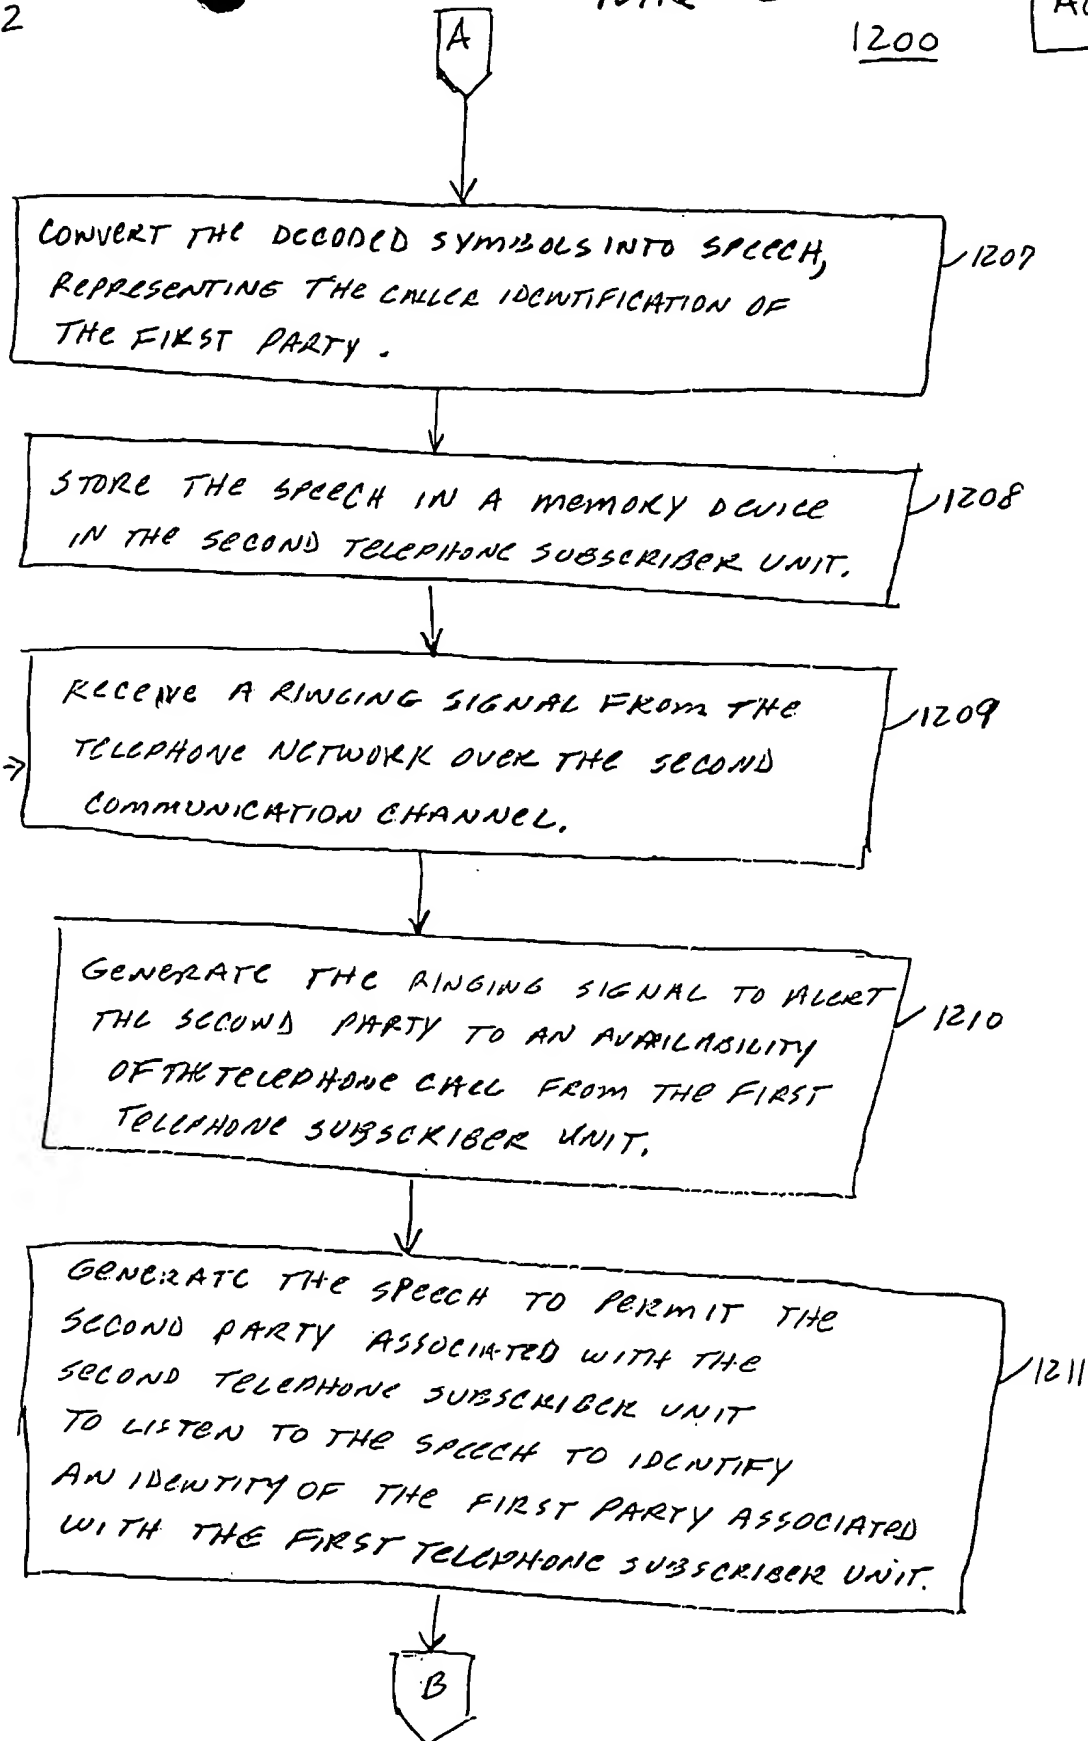 2
A
1200
CONVERT THE DECODED SYMBOLS INTO SPEECH,
REPRESENTING THE CALLER IDENTIFICATION OF
THE FIRST PARTY.
1207
STORE THE SPEECH IN A MEMORY DEVICE
IN THE SECOND TELEPHONE SUBSCRIBER UNIT.
1208
RECEIVE A RINGING SIGNAL FROM THE
TELEPHONE NETWORK OVER THE SECOND
COMMUNICATION CHANNEL.
1209
GENERATE THE RINGING SIGNAL TO ALERT
THE SECOND PARTY TO AN AVAILABILITY
OF THE TELEPHONE CALL FROM THE FIRST
TELEPHONE SUBSCRIBER UNIT.
1210
GENERATE THE SPEECH TO PERMIT THE
SECOND PARTY ASSOCIATED WITH THE
SECOND TELEPHONE SUBSCRIBER UNIT
TO LISTEN TO THE SPEECH TO IDENTIFY
AN IDENTITY OF THE FIRST PARTY ASSOCIATED
WITH THE FIRST TELEPHONE SUBSCRIBER UNIT.
1211
B